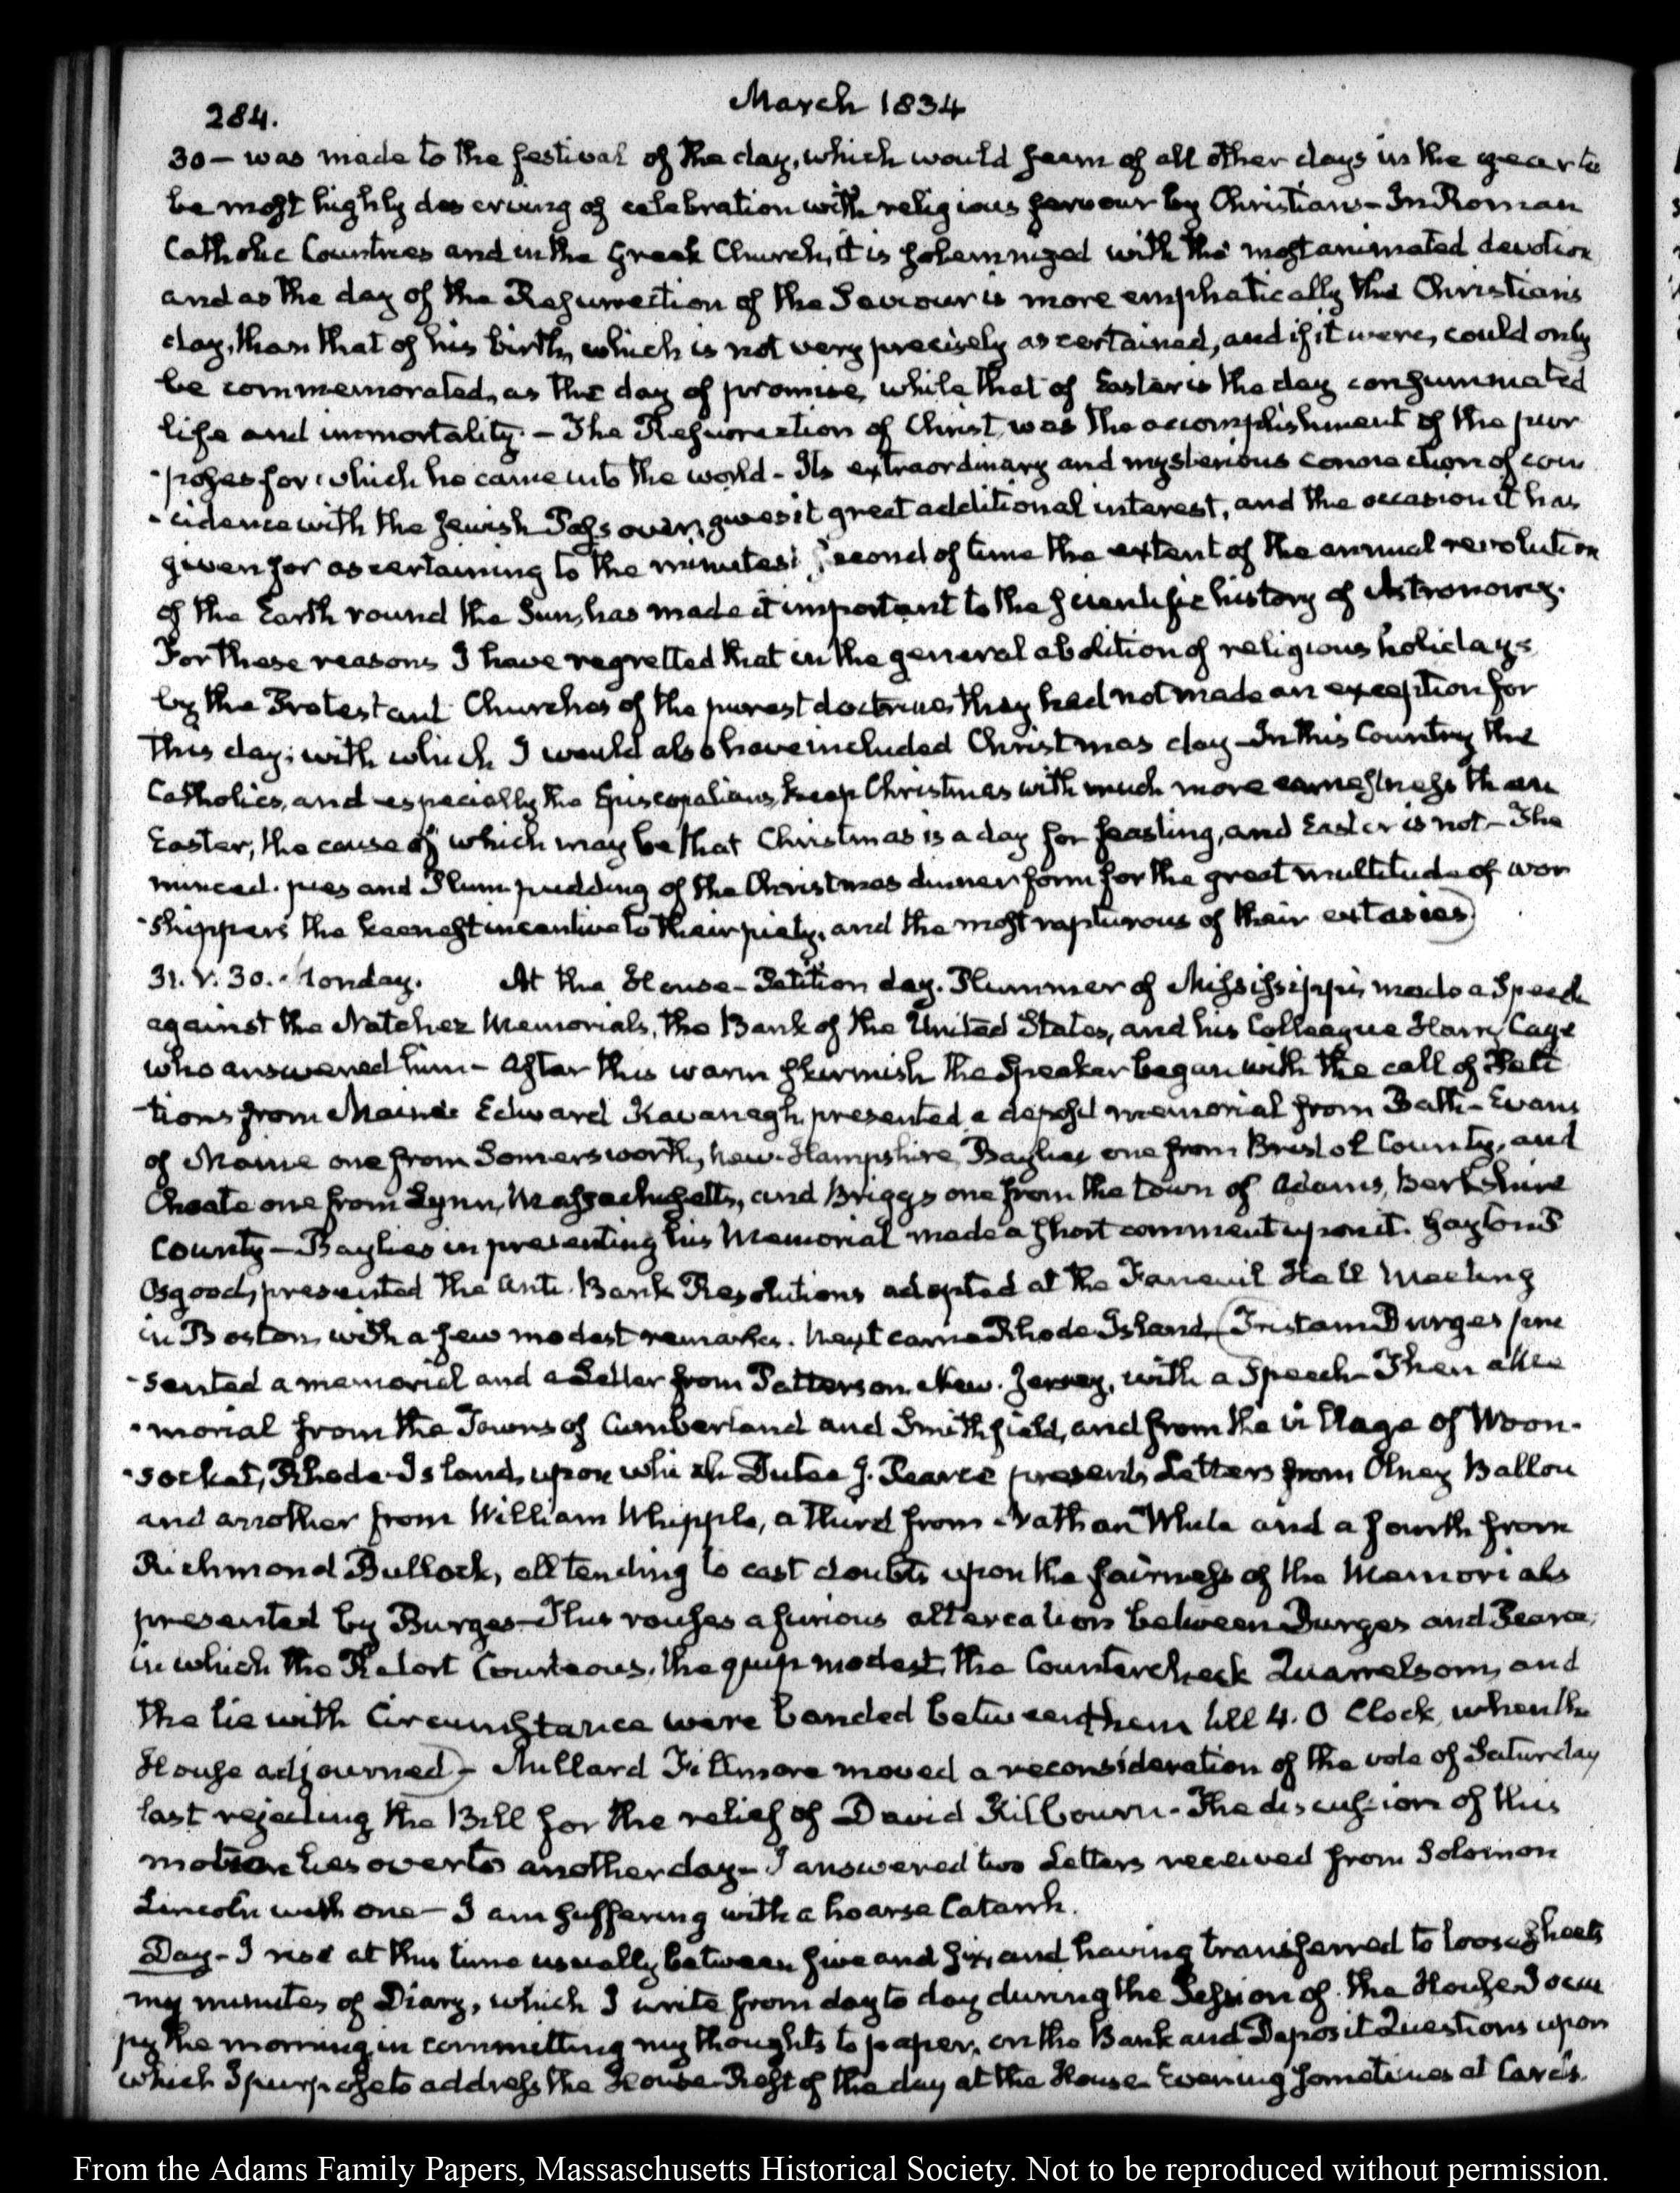 284.
March 1834
30 — was made to the festival of the day, which would seem of all other days in the year to
be most highly deserving of celebration with religious fervour by Christians — In Roman
Catholic Countries and in the Greek Church, it is solemnized with the most animated devotion
and as the day of the Resurrection of the Saviour is more emphatically the Christians
day, than that of his birth, which is not very precisely ascertained, and if it were, could only
be commemorated, as the day of promise, while that of Easter is the day consummated
life and immortality. — The Resurrection of Christ was the accomplishment of the pur
-poses for which he came into the world — Its extraordinary and mysterious connection of coin
-cidence with the Jewish Passover, gives it great additional interest, and the occasion it has
given for ascertaining to the minutest second of time the extent of the annual revolution
of the Earth round the Sun, has made it important to the scientific history of Astronomy.
For these reasons I have regretted that in the general abolition of religious holidays
by the Protestant Churches of the purest doctrines they had not made an exception for
this day; with which I would also have included Christmas day — In this Country the
Catholics, and especially the Episcopalians, keep Christmas with much more earnestness than
Easter, the cause of which may be that Christmas is a day for feasting, and Easter is not — The
minced-pies and Plum pudding of the Christmas dinner form for the great multitude of wor
-shippers the keenest incentive to their piety, and the most rapturous of their extasies)
31. V. 30. Monday. At the House — Petition day. Plummer of Mississippi, made a Speech
against the Natchez Memorials, the Bank of the United States, and his Colleague Harry Cage
who answered him — After this warm skirmish the Speaker began with the call of Peti
-tions from Maine Edward Kavanagh presented a deposit memorial from Bath — Evans
of Maine one from Somersworth, New-Hampshire, Baylies one from Bristol County, and
Choate one from Lynn, Massachusetts, and Briggs one from the town of Adams, Berkshire
County — Baylies in presenting his Memorial made a short comment upon it. Gayton P
Osgood, presented the Anti-Bank Resolutions adopted at the Faneuil Hall Meeting
in Boston, with a few modest remarks. Next came Rhode Island, (Tristam Burges pre
-sented a memorial and a Letter from Patterson New-Jersey, with a Speech — Then a Me
-morial from the Towns of Cumberland and Smithfield, and from the village of Woon-
-socket, Rhode-Island, upon which Dutee J. Pearce presents Letters from Olney Ballou
and another from William Whipple, a third from Nathan White and a fourth from
Richmond Bullock, all tending to cast doubts upon the fairness of the Memorials
presented by Burges — This rouses a furious altercation between Burges and Pearce,
in which the Retort Courteous, the quip modest, the Countercheck Quarrelsom, and
the lie with Circumstance were banded between them till 4. O Clock, when the
House adjourned) — Millard Fillmore moved a reconsideration of the vote of Saturday
last rejecting the Bill for the relief of David Kilbourn — The discussion of this
motion lies over to another day — I answered two Letters received from Solomon
Lincoln with one — I am suffering with a hoarse Catarrh.
Day — I rise at this time usually between five and six, and having transferred to loose sheets
my minutes of Diary, which I write from day to day during the Session of the House I occu
py the morning in committing my thoughts to paper, on the Bank and Deposit Questions upon
which I purpose to address the House — Rest of the day at the House — Evening sometimes at Cards.
From the Adams Family Papers, Massaschusetts Historical Society. Not to be reproduced without permission.